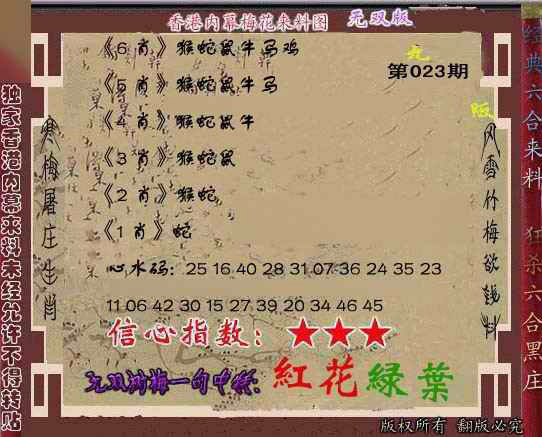 香港内幕梅花来料图 无双版
第023期
《6 肖》猴蛇鼠牛马鸡
《5 肖》猴蛇鼠牛马
《4 肖》猴蛇鼠牛
《3 肖》猴蛇鼠
《2 肖》猴蛇
《1 肖》蛇
心水码: 25 16 40 28 31 07 36 24 35 23
11 06 42 30 15 27 39 20 34 46 45
信心指数: ★★★
无双剑梅一句中特: 紅花緑葉
独家香港内幕来料未经允许不得转贴
寒梅屠庄生肖
风雪竹梅欲钱料
经典六合来料 狂杀六合黑庄
版权所有 翻版必究